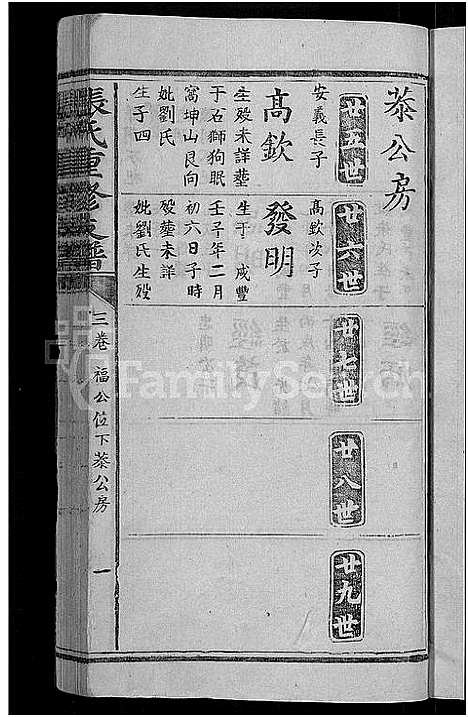 恭公房
廿五世
安義長子
高欽
生殁未詳塟
于石獅狗眠
窩坤山艮向
妣劉氏
生子四
廿六世
高欽次子
發明
生于咸豐
壬子年二月
初六日子時
殁塟未詳
妣劉氏生殁
廿七世
廿八世
廿九世
張氏重修支譜
三卷 福公位下恭公房 一
FamilySearch